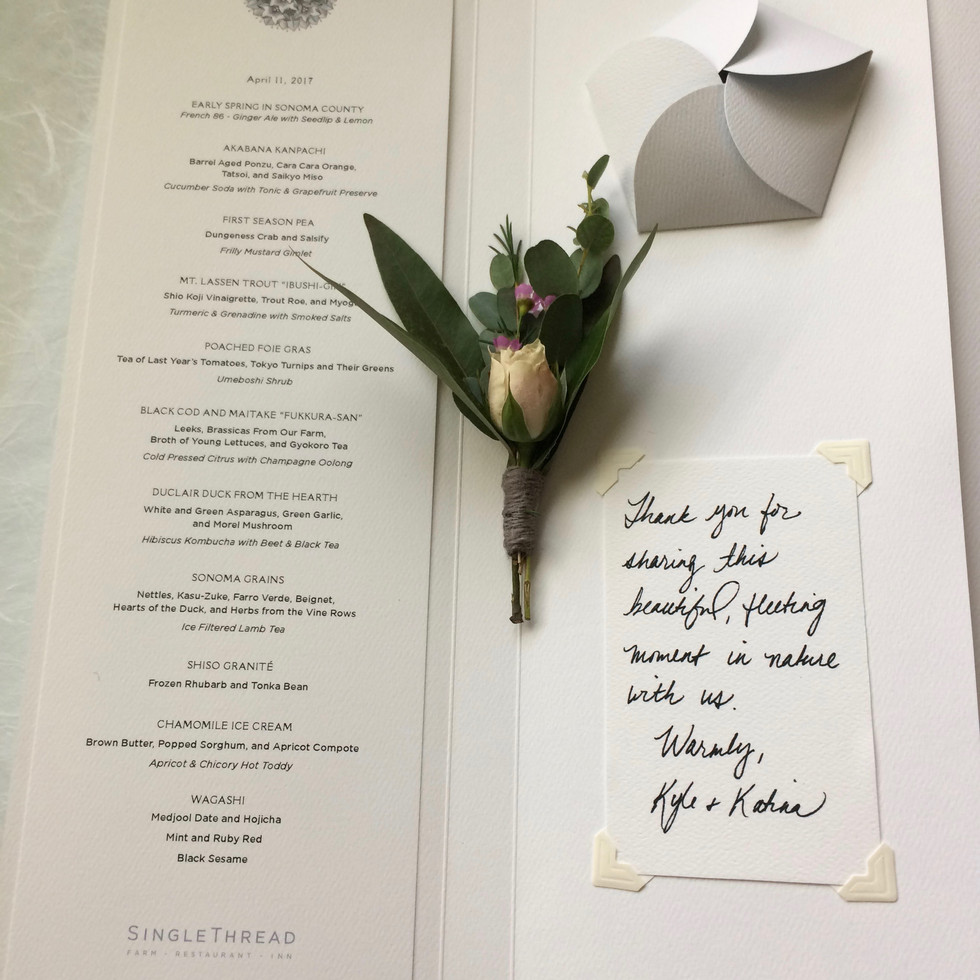 April 11, 2017
EARLY SPRING IN SONOMA COUNTY
French 86 - Ginger Ale with Seedlip & Lemon
AKABANA KANPACHI
Barrel Aged Ponzu, Cara Cara Orange,
Tatsoi, and Saikyo Miso
Cucumber Soda with Tonic & Grapefruit Preserve
FIRST SEASON PEA
Dungeness Crab and Salsify
Frilly Mustard Gimlet
MT. LASSEN TROUT "IBUSHI-GIN"
Shio Koji Vinaigrette, Trout Roe, and Myog
Turmeric & Grenadine with Smoked Salts
POACHED FOIE GRAS
Tea of Last Year's Tomatoes, Tokyo Turnips and Their Greens
Umeboshi Shrub
BLACK COD AND MAITAKE "FUKKURA-SAN"
Leeks, Brassicas From Our Farm,
Broth of Young Lettuces, and Gyokoro Tea
Cold Pressed Citrus with Champagne Oolong
DUCLAIR DUCK FROM THE HEARTH
White and Green Asparagus, Green Garlic,
and Morel Mushroom
Hibiscus Kombucha with Beet & Black Tea
SONOMA GRAINS
Nettles, Kasu-Zuke, Farro Verde, Beignet,
Hearts of the Duck, and Herbs from the Vine Rows
Ice Filtered Lamb Tea
SHISO GRANITÉ
Frozen Rhubarb and Tonka Bean
CHAMOMILE ICE CREAM
Brown Butter, Popped Sorghum, and Apricot Compote
Apricot & Chicory Hot Toddy
WAGASHI
Medjool Date and Hojicha
Mint and Ruby Red
Black Sesame
SINGLETHREAD
FARM - RESTAURANT - INN
Thank you for
sharing this
beautiful, fleeting
moment in nature
with us.
Warmly,
Kyle + Katina